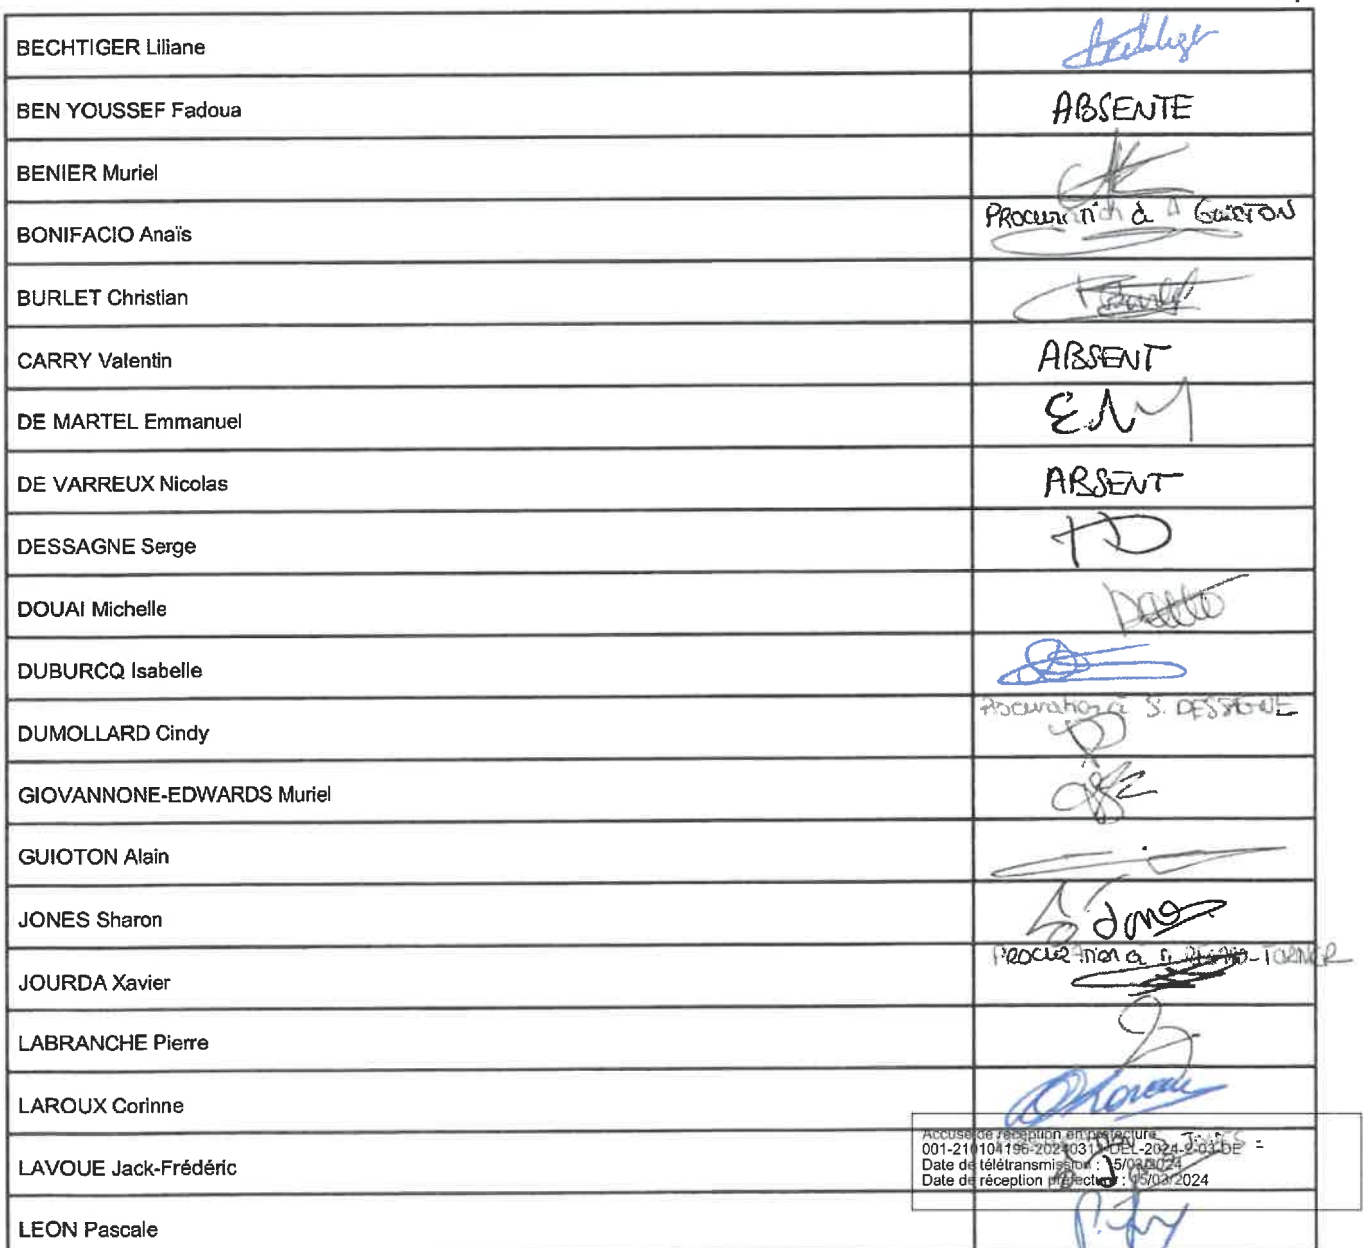 BECHTIGER Liliane
BEN YOUSSEF Fadoua ABSENTE
BENIER Muriel
BONIFACIO Anaïs Procuration à A GUIOTON
BURLET Christian
CARRY Valentin ABSENT
DE MARTEL Emmanuel
DE VARREUX Nicolas ABSENT
DESSAGNE Serge
DOUAI Michelle
DUBURCQ Isabelle
DUMOLLARD Cindy Procuration à S. DESSAGNE
GIOVANNONE-EDWARDS Muriel
GUIOTON Alain
JONES Sharon
JOURDA Xavier PROCURATION à
LABRANCHE Pierre
LAROUX Corinne
LAVOUE Jack-Frédéric
Accusé de réception en préfecture
001-210104196-20240311-DEL-2024-2-03-DE
Date de télétransmission : 15/03/2024
Date de réception préfecture : 15/03/2024
LEON Pascale